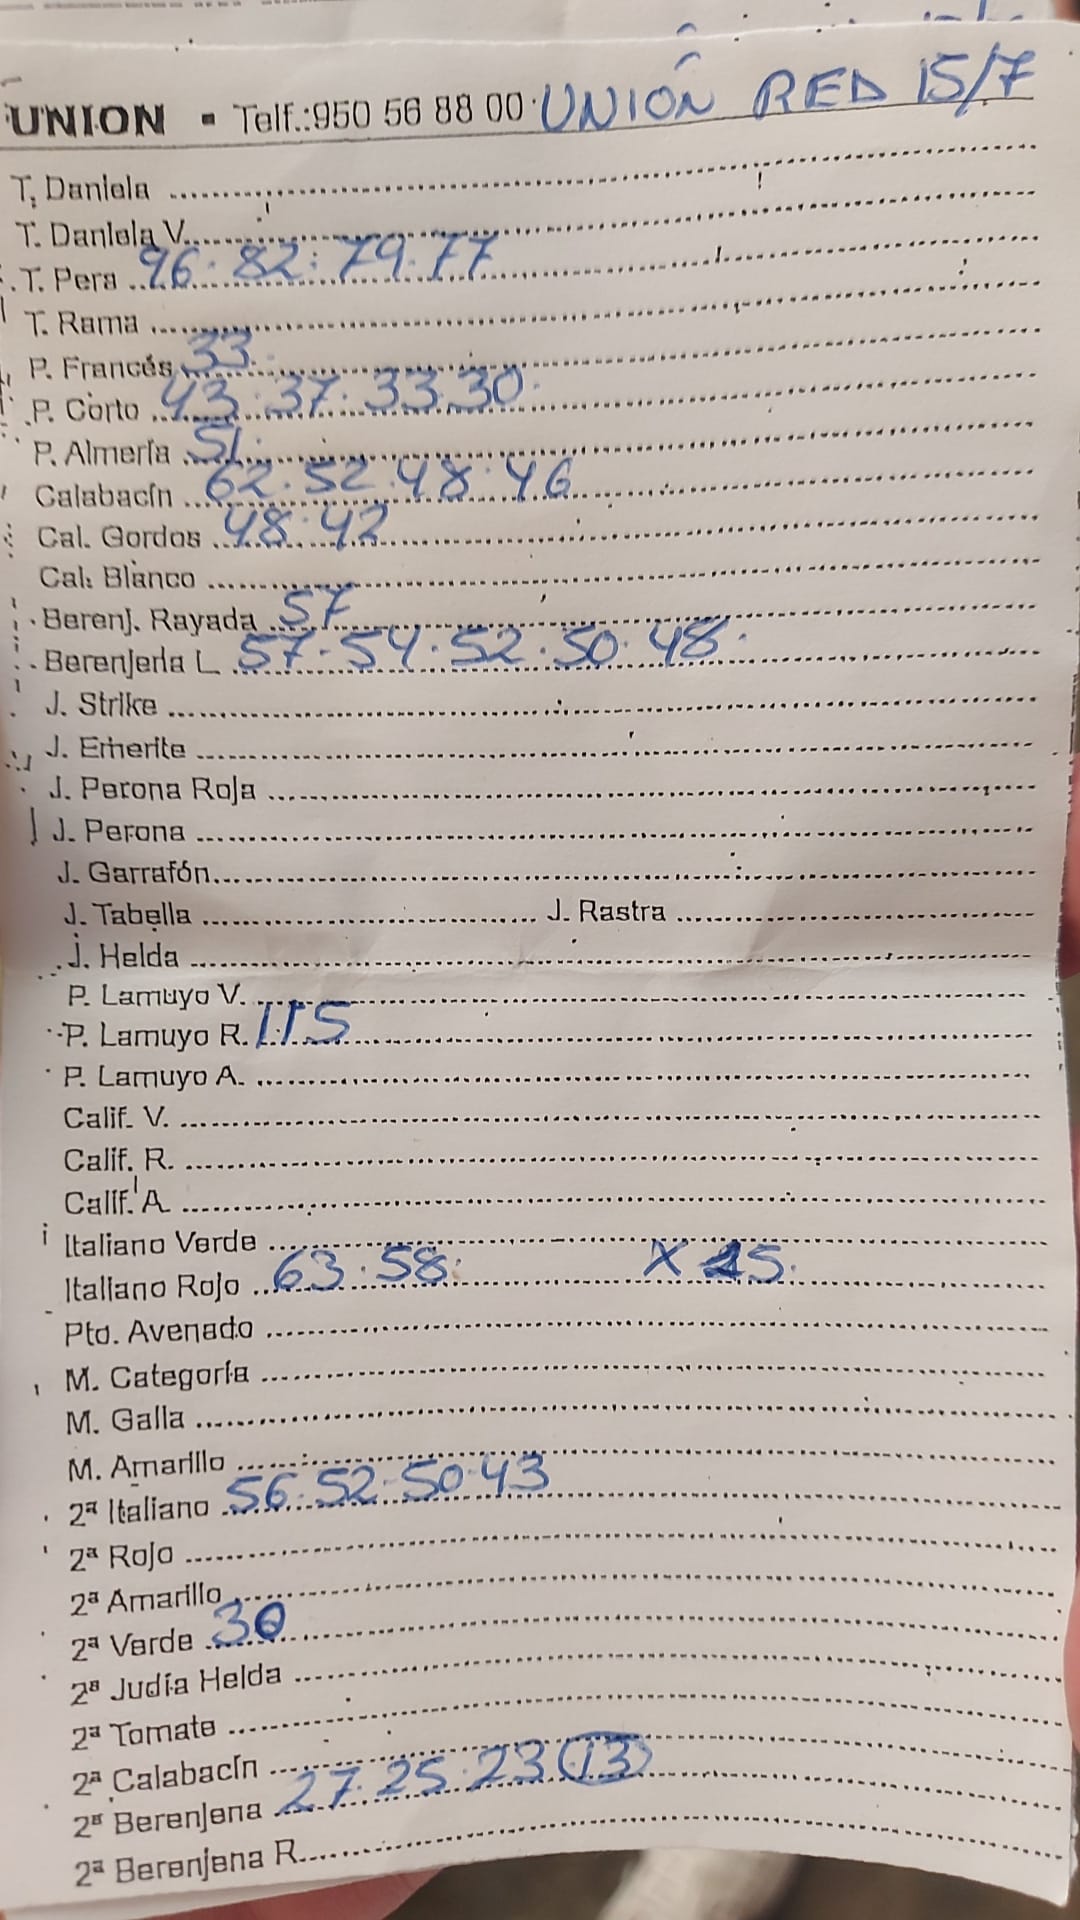 UNION - Telf.:950 56 88 00 UNIÓN RED 15/7
T. Daniela
T. Daniela V.
T. Pera 96. 82. 79. 77
T. Rama
P. Francés 33.
P. Corto 43. 37. 33. 30.
P. Almería 51.
Calabacín 62. 52. 48. 46
Cal. Gordos 48. 42
Cal. Blanco
Berenj. Rayada 57
Berenjena L 57. 54. 52. 50. 48.
J. Strike
J. Emerite
J. Perona Roja
J. Perona
J. Garrafón
J. Tabella J. Rastra
J. Helda
P. Lamuyo V.
P. Lamuyo R. 115
P. Lamuyo A.
Calif. V.
Calif. R.
Calif. A.
Italiano Verde
Italiano Rojo 63. 58. X 45.
Pto. Avenado
M. Categoría
M. Galia
M. Amarillo
2ª Italiano 56. 52. 50. 43
2ª Rojo
2ª Amarillo
2ª Verde 30
2ª Judía Helda
2ª Tomate
2ª Calabacín
2ª Berenjena 27. 25. 23 (13)
2ª Berenjena R.